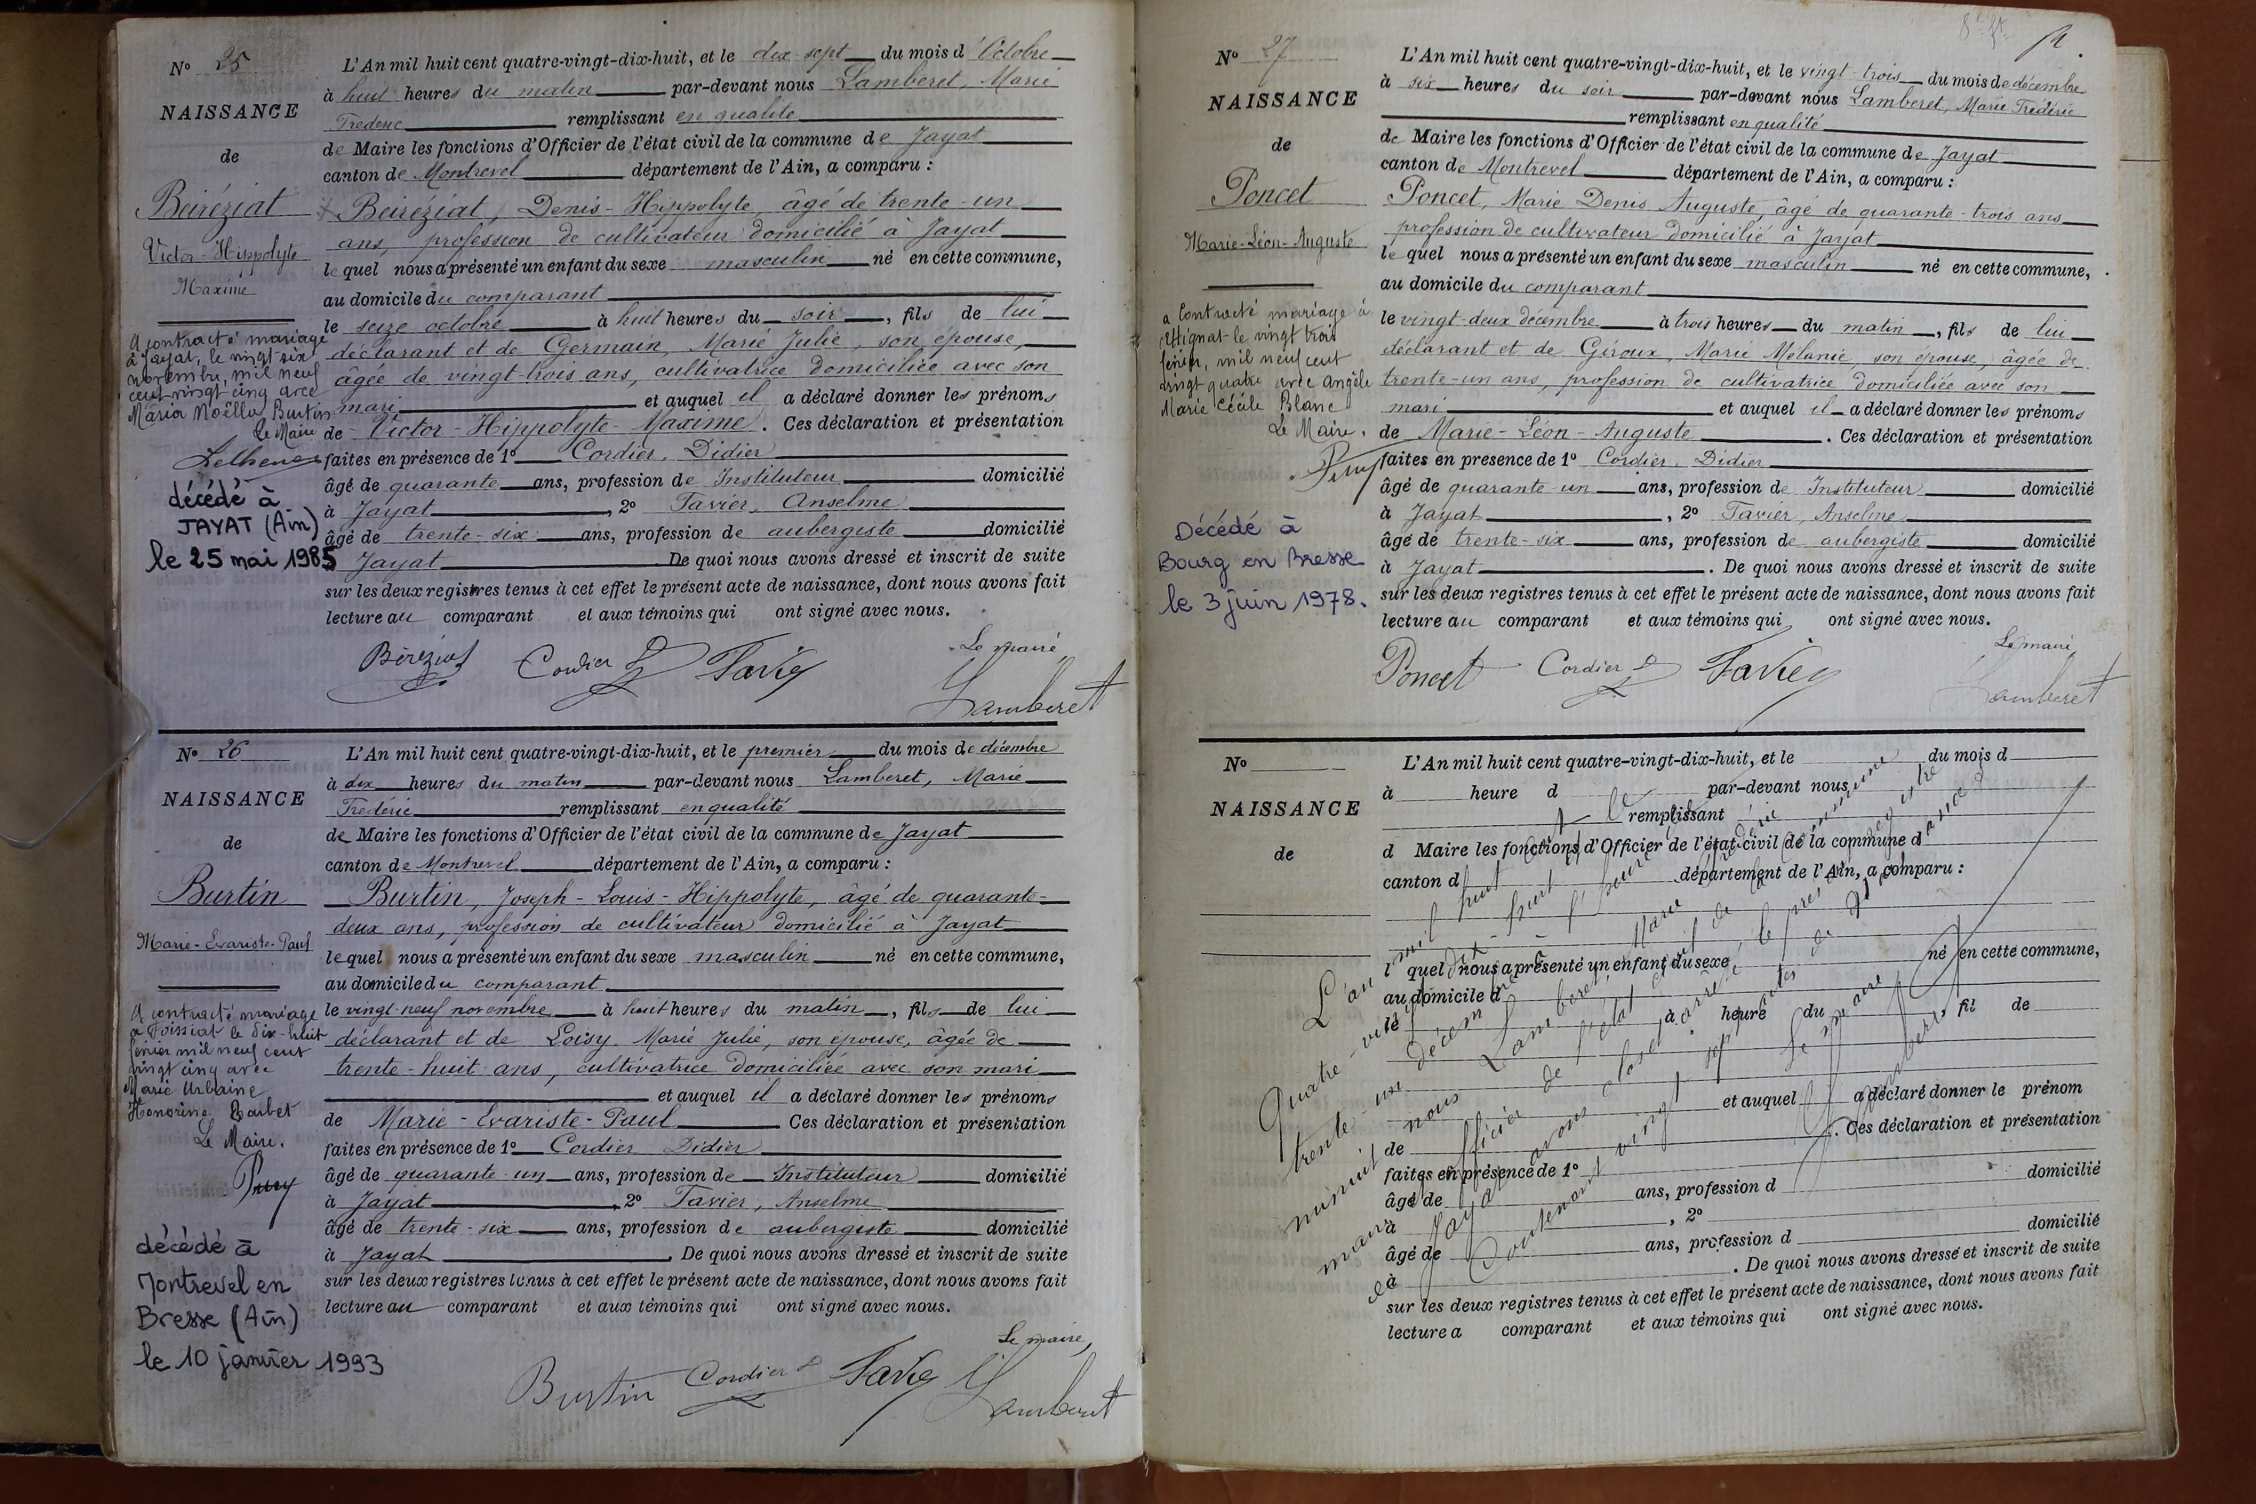 Nº 25
NAISSANCE
de
Beiréziat
Victor-Hippolyte
Maxime
A contracté mariage
à Jayat, le vingt six
novembre, mil neuf
cent vingt cinq avec
Maria Noëlla Burtin
Le Maire
décédé à
JAYAT (Ain)
le 25 mai 1985
L'An mil huit cent quatre-vingt-dix-huit, et le dix-sept du mois d'Octobre
à huit heures du matin par-devant nous Lamberet, Marie
Frédéric remplissant en qualité
de Maire les fonctions d'Officier de l'état civil de la commune de Jayat
canton de Montrevel département de l'Ain, a comparu :
Beiréziat, Denis-Hippolyte, âgé de trente-un
ans, profession de cultivateur domicilié à Jayat
lequel nous a présenté un enfant du sexe masculin né en cette commune,
au domicile du comparant
le seize octobre à huit heures du soir, fils de lui
déclarant et de Germain, Marie Julie, son épouse,
âgée de vingt-trois ans, cultivatrice domiciliée avec son
mari et auquel il a déclaré donner les prénoms
de Victor-Hippolyte-Maxime. Ces déclaration et présentation
faites en présence de 1º Cordier, Didier
âgé de quarante ans, profession de Instituteur domicilié
à Jayat, 2º Favier, Anselme
âgé de trente-six ans, profession de aubergiste domicilié
Jayat De quoi nous avons dressé et inscrit de suite
sur les deux registres tenus à cet effet le présent acte de naissance, dont nous avons fait
lecture au comparant et aux témoins qui ont signé avec nous.
Le maire
Béréziat Cordier D Favier Lamberet
Nº 26
NAISSANCE
de
Burtin
Marie-Evariste-Paul
A contracté mariage
à Foissiat le dix-huit
février mil neuf cent
vingt cinq avec
Marie Urbaine
Honorine Barbet
Le Maire.
décédé à
Montrevel en
Bresse (Ain)
le 10 janvier 1993
L'An mil huit cent quatre-vingt-dix-huit, et le premier du mois de décembre
à dix heures du matin par-devant nous Lamberet, Marie
Frédéric remplissant en qualité
de Maire les fonctions d'Officier de l'état civil de la commune de Jayat
canton de Montrevel département de l'Ain, a comparu :
Burtin, Joseph-Louis-Hippolyte, âgé de quarante-
deux ans, profession de cultivateur domicilié à Jayat
lequel nous a présenté un enfant du sexe masculin né en cette commune,
au domicile du comparant
le vingt-neuf novembre à huit heures du matin, fils de lui
déclarant et de Loisy Marie Julie, son épouse, âgée de
trente-huit ans, cultivatrice domiciliée avec son mari
et auquel il a déclaré donner les prénoms
de Marie-Evariste-Paul Ces déclaration et présentation
faites en présence de 1º Cordier Didier
âgé de quarante-un ans, profession de Instituteur domicilié
à Jayat, 2º Favier, Anselme
âgé de trente-six ans, profession de aubergiste domicilié
à Jayat. De quoi nous avons dressé et inscrit de suite
sur les deux registres tenus à cet effet le présent acte de naissance, dont nous avons fait
lecture au comparant et aux témoins qui ont signé avec nous.
Le maire,
Burtin Cordier D Favier Lamberet
Nº 27
NAISSANCE
de
Poncet
Marie-Léon-Auguste
a contracté mariage à
Attignat le vingt trois
février, mil neuf cent
vingt quatre avec Angèle
Marie Cécile Blanc
Le Maire.
Décédé à
Bourg en Bresse
le 3 juin 1978.
L'An mil huit cent quatre-vingt-dix-huit, et le vingt-trois du mois de décembre
à six heures du soir par-devant nous Lamberet, Marie Frédéric
remplissant en qualité
de Maire les fonctions d'Officier de l'état civil de la commune de Jayat
canton de Montrevel département de l'Ain, a comparu :
Poncet, Marie Denis Auguste, âgé de quarante-trois ans
profession de cultivateur domicilié à Jayat
lequel nous a présenté un enfant du sexe masculin né en cette commune,
au domicile du comparant
le vingt-deux décembre à trois heures du matin, fils de lui
déclarant et de Giroux, Marie Mélanie son épouse, âgée de
trente-un ans, profession de cultivatrice domiciliée avec son
mari et auquel il a déclaré donner les prénoms
de Marie-Léon-Auguste. Ces déclaration et présentation
faites en présence de 1º Cordier Didier
âgé de quarante-un ans, profession de Instituteur domicilié
à Jayat, 2º Favier, Anselme
âgé de trente-six ans, profession de aubergiste domicilié
à Jayat. De quoi nous avons dressé et inscrit de suite
sur les deux registres tenus à cet effet le présent acte de naissance, dont nous avons fait
lecture au comparant et aux témoins qui ont signé avec nous.
Le maire
Poncet Cordier D Favier Lamberet
Nº
NAISSANCE
de
L'An mil huit cent quatre-vingt-dix-huit, et le du mois d
à heure d par-devant nous
remplissant
d Maire les fonctions d'Officier de l'état civil de la commune d
canton d département de l'Ain, a comparu :
l quel nous a présenté un enfant du sexe né en cette commune,
au domicile d
le à heure du fil de
et auquel a déclaré donner le prénom
de . Ces déclaration et présentation
faites en présence de 1º
âgé de ans, profession d domicilié
à , 2º
âgé de ans, profession d domicilié
à . De quoi nous avons dressé et inscrit de suite
sur les deux registres tenus à cet effet le présent acte de naissance, dont nous avons fait
lecture a comparant et aux témoins qui ont signé avec nous.
L'an mil huit cent
Quatre-vingt-dix-huit et le
trente-un décembre à l'heure de
minuit nous Lamberet Marie Frédéric
maire officier de l'état civil de la commune
de Jayat avons clos et arrêté le présent registre
Contenant vingt sept actes de naissances
Le maire
Lamberet